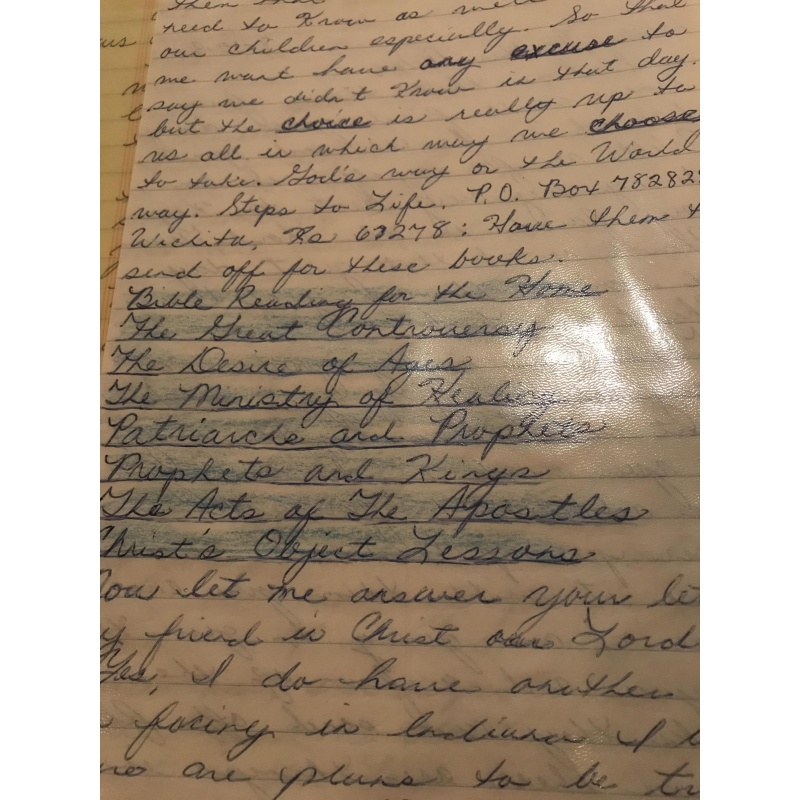 them that
need to know as well
our children especially. So that
we want have any excuse to
say we didn't know in that day.
but the choice is really up to
us all in which way we choose
to take. God's way or the World
way. Steps to Life. P.O. Box 78282
Wichita, Ks 67278: Have them t
send off for these books.
Bible Reading for the Home
The Great Controversy
The Desire of Ages
The Ministry of Healing
Patriarchs and Prophets
Prophets and Kings
The Acts of The Apostles
Christ's Object Lessons
Now let me answer your le
y friend in Christ our Lord
Yes, I do have another
facing in Indiana I
are plans to be tr